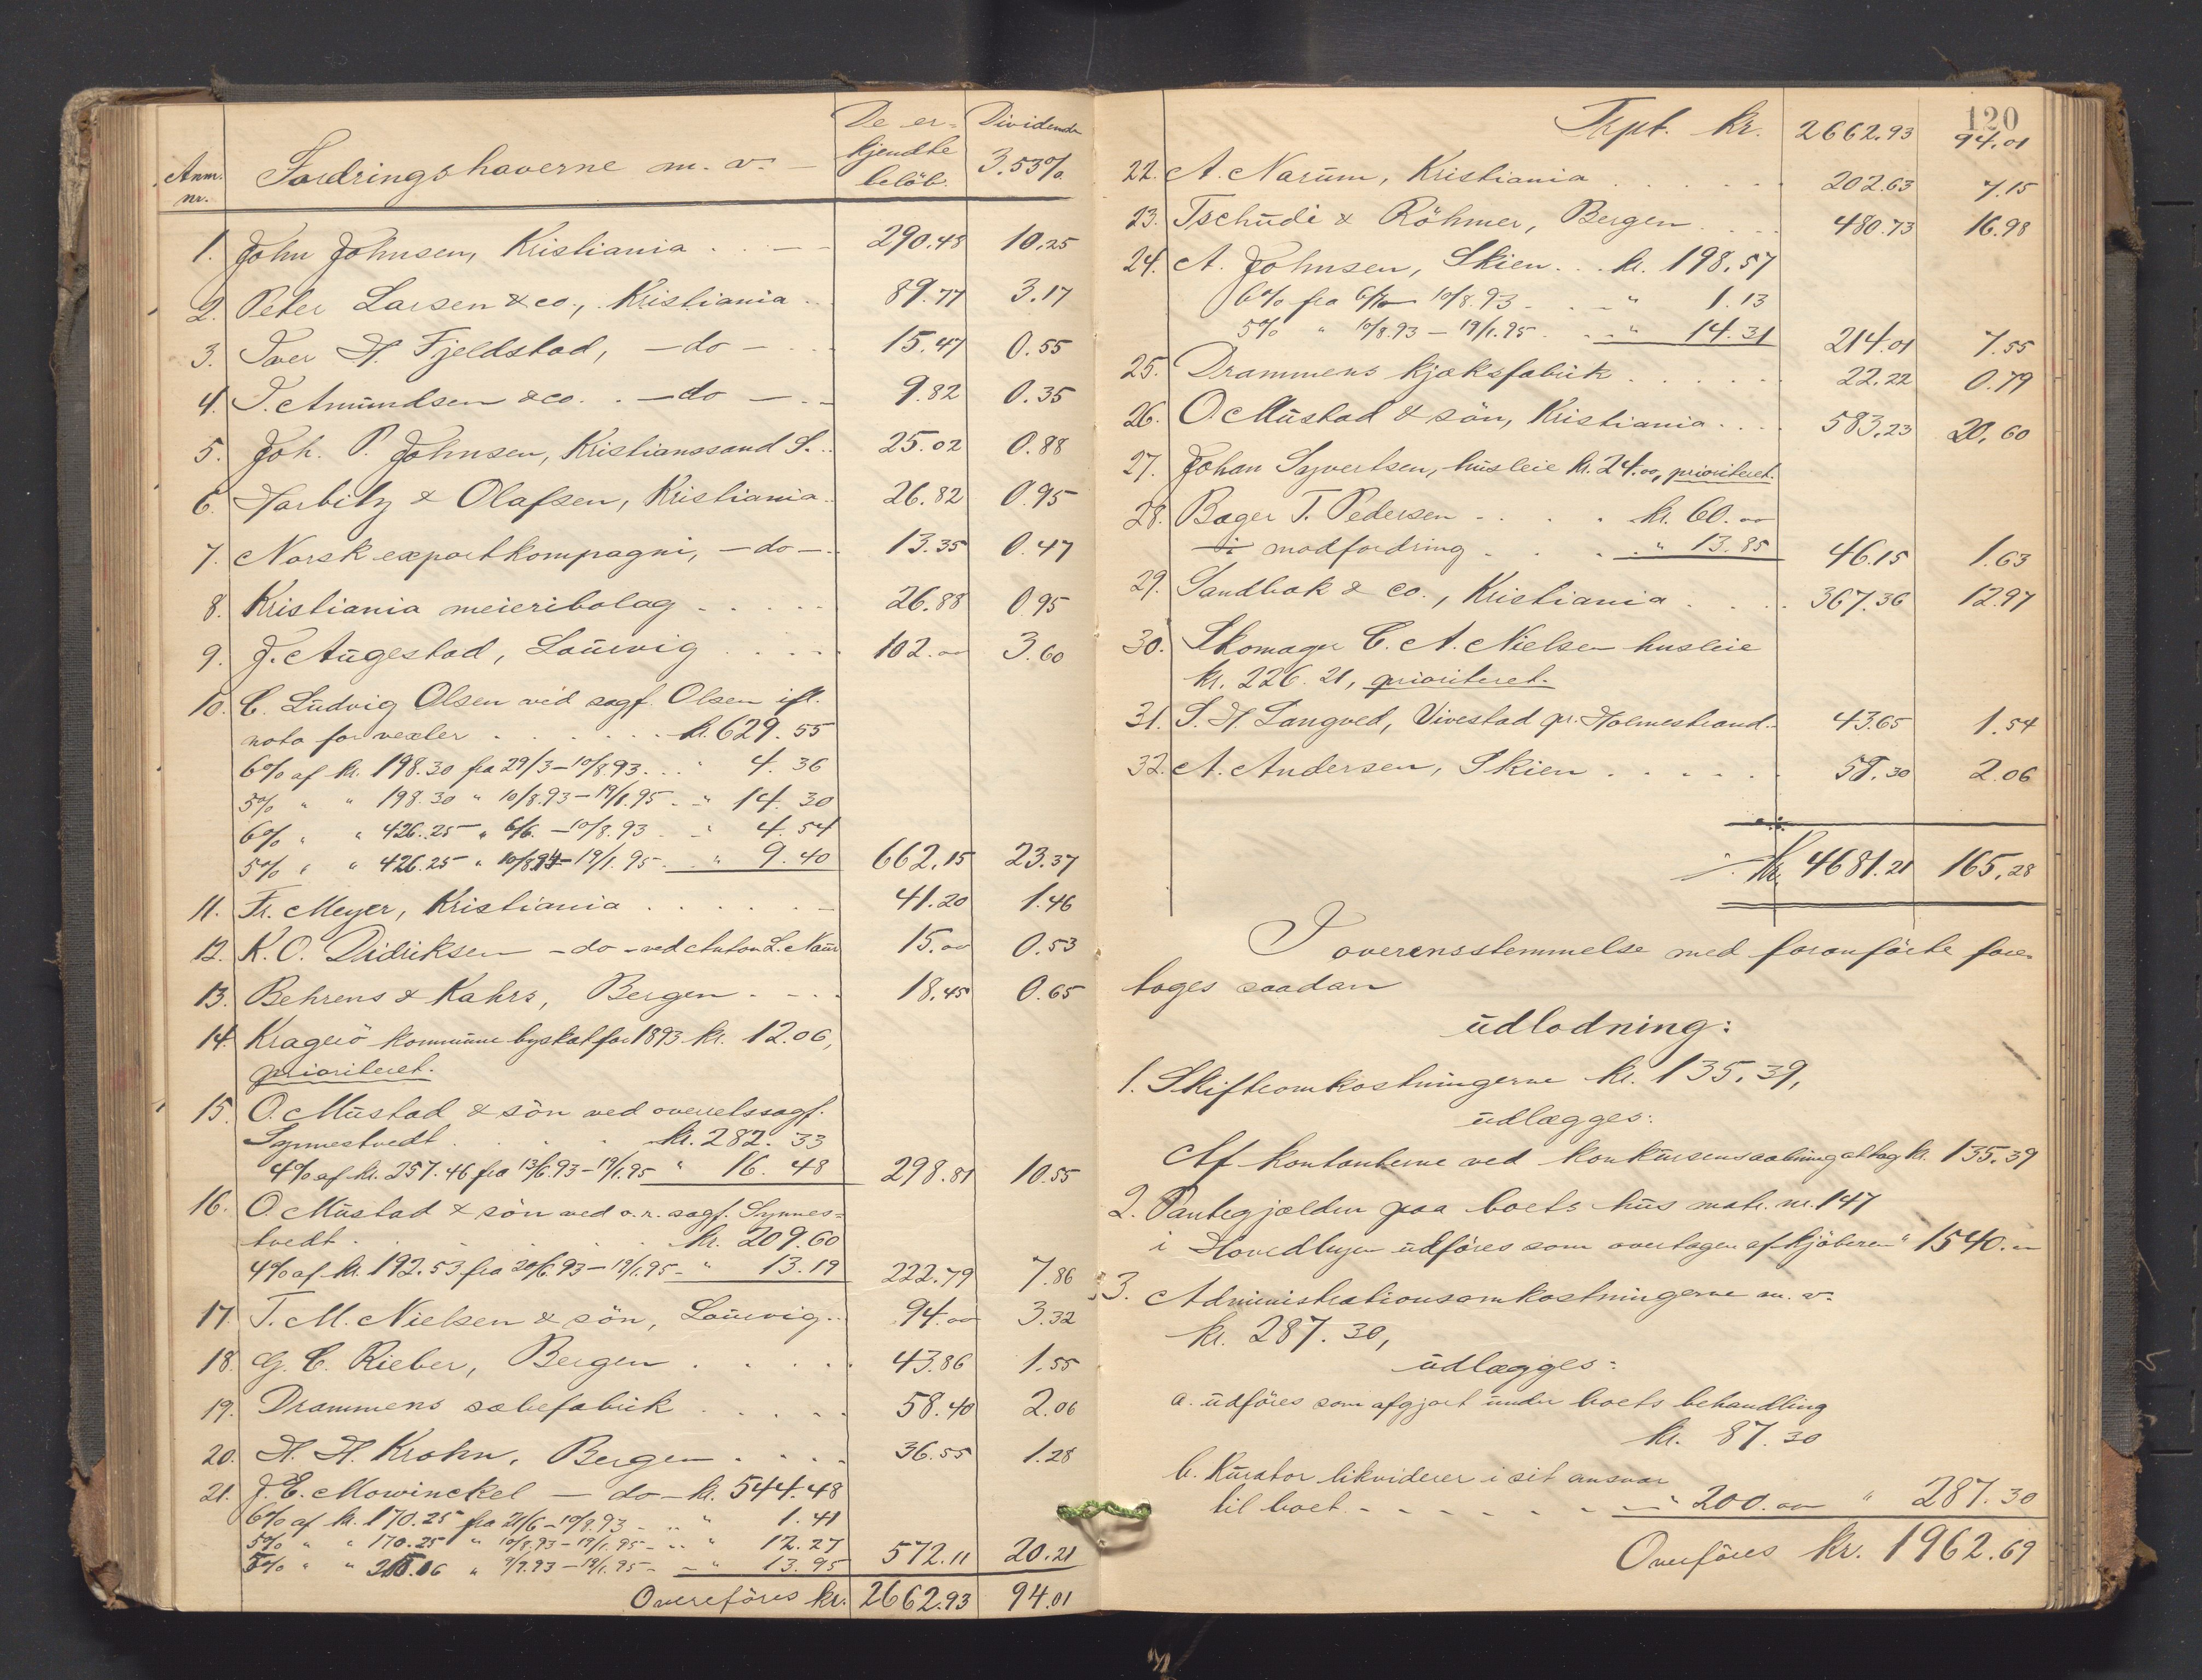 De er- Dividende
kjendte 3.53%
beløb.
Anm. nr. Fordringshaverne m. v. —
1. John Johnsen, Kristiania . . — 290.48 10.25
2. Peter Larsen & co., Kristiania . . 89.77 3.17
3. Iver H. Fjeldstad, — do — . . 15.47 0.55
4. T. Amundsen & co. . — do — . - 9.82 0.35
5. Joh. P. Johnsen, Kristianssand S. . 25.02 0.88
6. Harbitz & Olafsen, Kristiania . 26.82 0.95
7. Norsk exportkompagni, — do — . 13.35 0.47
8. Kristiania meieribolag . . . . . 26.88 0.95
9. J. Augestad, Laurvig . . . . 102.00 3.60
10. C. Ludvig Olsen ved sagf. Olsen ifl.
nota for vexler . . . . . . kr. 629.55
6% af kr. 198.30 fra 29/3 – 10/8.93 . . . " 4.36
5% " " 198.30 " 10/8.93 – 19/1.95 . - " 14.30
6% " " 426.25 " 6/6. – 10/8.93 . . " 4.54
5% " " 426.25 " 10/8.94 – 19/1.95 . . " 9.40 662.15 23.37
11. Fr. Meyer, Kristiania . . . . . . 41.20 1.46
12. K. O. Didriksen — do — ved Anton L. Naur 15.00 0.53
13. Behrens & Kahrs, Bergen . - . . 18.45 0.65
14. Kragerö kommune byskat for 1893 kr. 12.06,
prioriteret.
15. O. Mustad & sön ved overretssagf.
Synnestvedt . . . . kr. 282.33
4% af kr. 257.46 fra 13/6.93 – 19/1.95 " 16.48 298.81 10.55
16. O. Mustad & sön ved o. r. sagf. Synnes-
tvedt . . . . . . kr. 209.60
4% af kr. 192.53 fra 20/6.93 – 19/1.95 - " 13.19 222.79 7.86
17. T. M. Nielsen & sön, Laurvig . . 94.00 3.32
18. G. C. Rieber, Bergen . . . . . 43.86 1.55
19. Drammens sæbefabrik . . . . . 58.40 2.06
20. H. H. Krohn, Bergen . . . . 36.55 1.28
21. J. E. Mowinckel — do — kr. 544.48
6% af kr. 170.25 fra 21/6 – 10/8.93 - . . " 1.41
5% " " 170.25 " 10/8.93 – 19/1.95 - . . " 12.27
5% " " " 9/2.93 – 19/1.95 - - " 13.95 572.11 20.21
Overføres kr. 2662.93 94.01
120
Trpt. kr. 2662.93 94.01
22. A. Narum, Kristiania . . . . . 202.63 7.15
23. Tschudi & Röhmer, Bergen . . . 480.73 16.98
24. A. Johnsen, Skien . . . kr. 198.57
6% fra – 10/8.93 - . . " 1.13
5% " 10/8.93 – 19/1.95 . . - " 14.31 214.01 7.55
25. Drammens kjæksfabrik . . . . . . 22.22 0.79
26. O. Mustad & sön, Kristiania . . . . 583.23 20.60
27. Johan Syvertsen, husleie kr. 24.00, prioriteret.
28. Bager T. Pedersen - . . . kr. 60.00
÷ modfordring . . . . " 13.85 46.15 1.63
29. Sandbak & co., Kristiania . . . . 367.36 12.97
30. Skomager C. A. Nielsen husleie
kr. 226.21, prioriteret.
31. S. H. Langved, Vivestad pr. Holmestrand . 43.65 1.54
32. A. Andersen, Skien . . . . . . 58.30 2.06
Kr. 4681.21 165.28
I overensstemmelse med foranførte fore-
tages saadan
udlodning:
1. Skifteomkostningerne kr. 135.39,
udlægges:
Af kontanterne ved konkursens aabning attag kr. 135.39
2. Pantegjælden paa boets hus matr. nr. 147
i Hovedbyen udføres som overtagen af kjøberen " 1540.00
3. Administrationsomkostningerne m. v.
kr. 287.30,
udlægges:
a. udføres som afgjort under boets behandling
kr. 87.30
b. Kurator likviderer i sit ansvar
til boet - - - - - - - " 200.00 " 287.30
Overføres kr. 1962.69